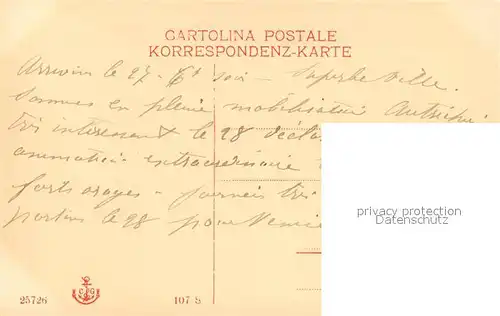 CARTOLINA POSTALE
KORRESPONDENZ-KARTE
Arrivons le 27. 6h soir - Superbe Ville.
Sommes en pleine mobilisation Autrichi
très interessant le 28 décla
animation extraordinaire
forts orages -
partons le 28 pour Venise
privacy protection
Datenschutz
25726
107 S